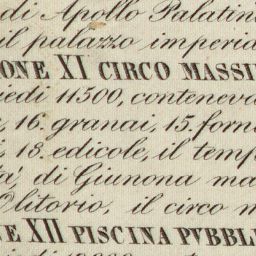 di Apollo Palatin
il palazzo imperia
ONE XI CIRCO MASSI
iedi 11500, conteneva
, 16. granai, 15. forn
, 18. edicole, il temp
a' di Giunona ma
Olitorio, il circo m
E XII PISCINA PVBBLI